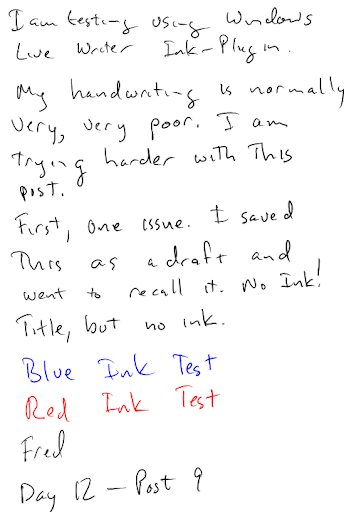 I am testing using Windows
Live Writer Ink-Plugin.
My handwriting is normally
very, very poor. I am
trying harder with This
post.
First, one issue. I saved
This as a draft and
went to recall it. No Ink!
Title, but no ink.
Blue Ink Test
Red Ink Test
Fred
Day 12 - Post 9